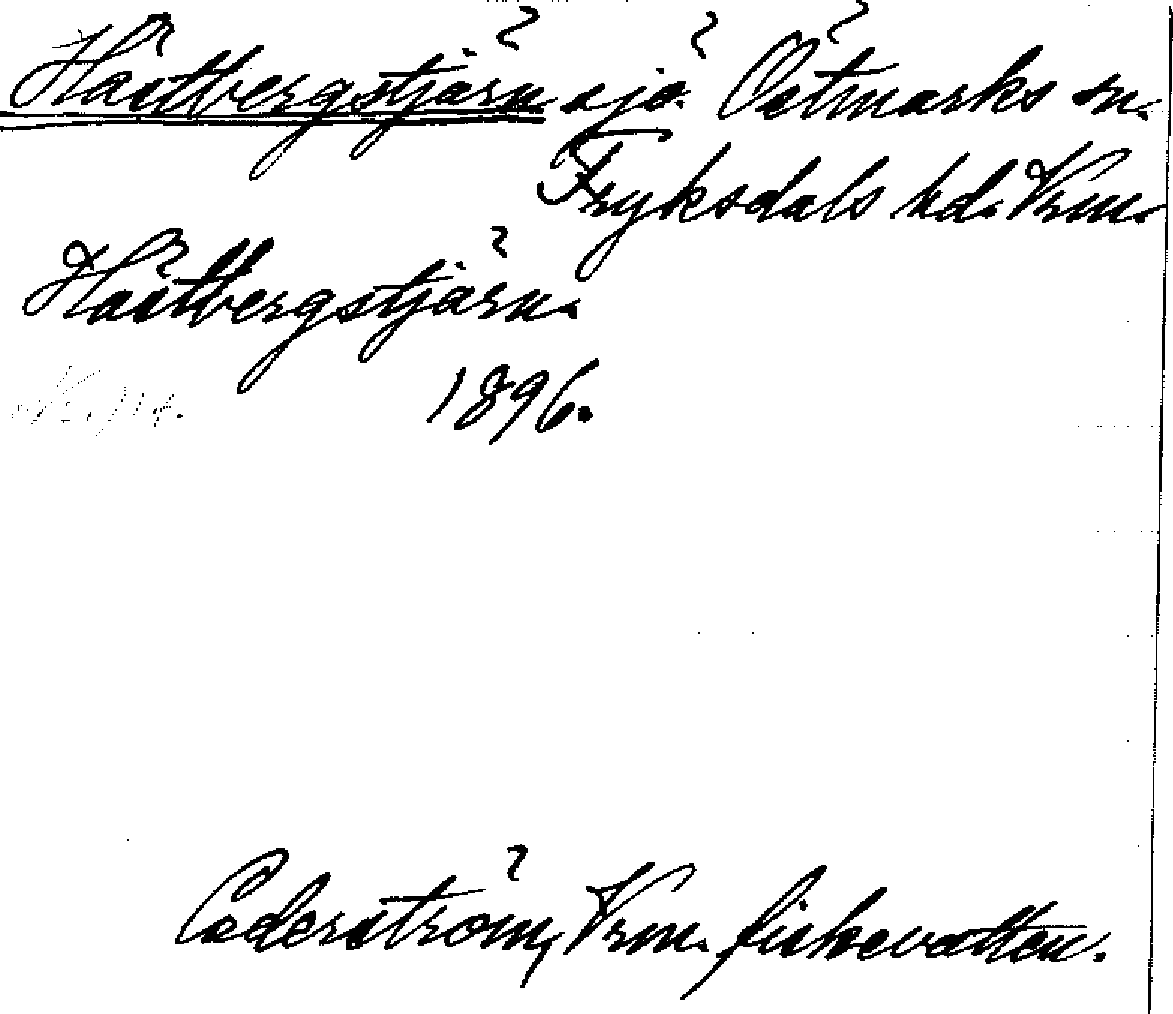 Hästbergstjärn sjö. Östmarks sn.
Fryksdals hd. Vrm.
Hästbergstjärn.
1896.
Cederström, Vrm. fiskevatten.